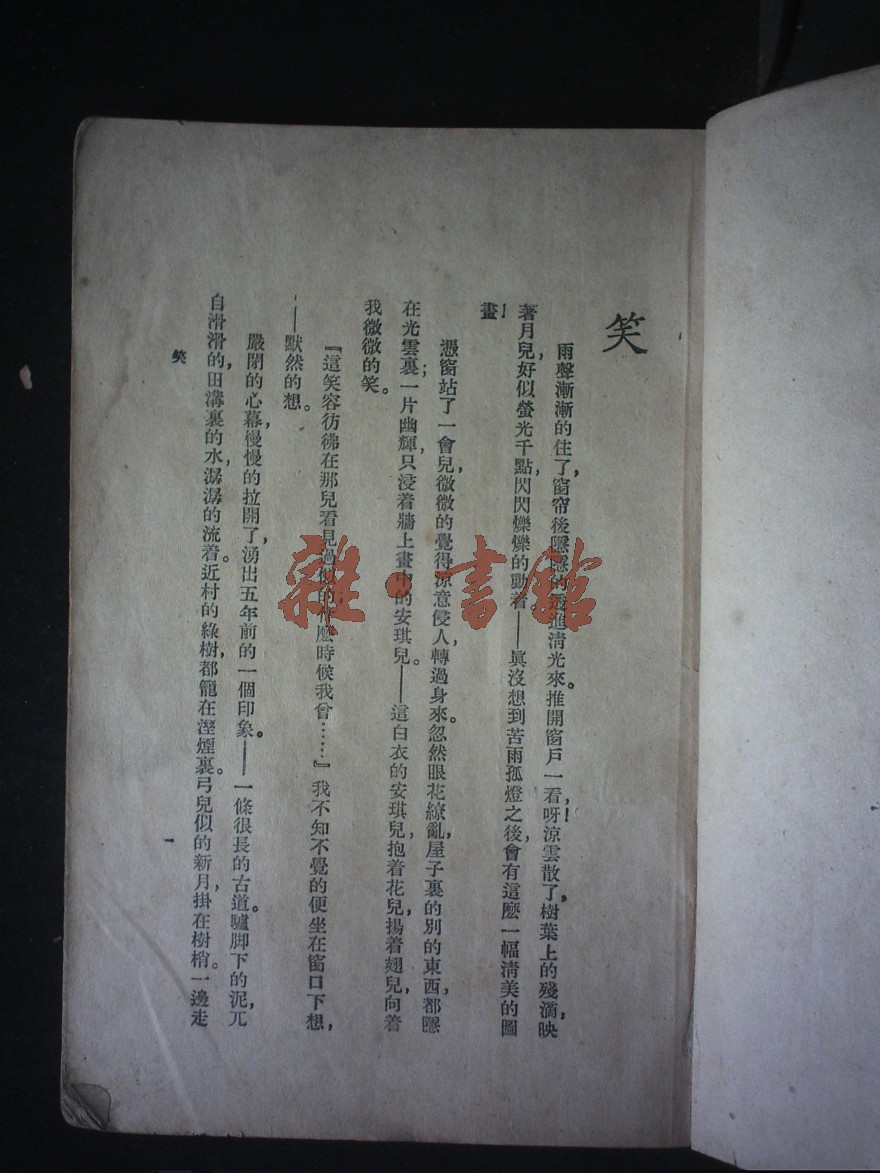 笑
雨聲漸漸的住了，窗帘後隱隱的透進清光來。推開窗戶一看，呀！涼雲散了，樹葉上的殘滴，映
著月兒，好似螢光千點，閃閃爍爍的動着。——眞沒想到苦雨孤燈之後，會有這麽一幅清美的圖
畫！
憑窗站了一會兒，微微的覺得涼意侵人。轉過身來，忽然眼花繚亂，屋子裏的別的東西，都隱
在光雲裏；一片幽輝，只浸着牆上畫中的安琪兒。——這白衣的安琪兒，抱着花兒，揚着翅兒，向着
我微微的笑。
『這笑容彷彿在那兒看見過似的，什麽時候，我曾……』我不知不覺的便坐在窗口下想，
——默然的想。
嚴閉的心幕，慢慢的拉開了，湧出五年前的一個印象。——一條很長的古道。驢脚下的泥，兀
自滑滑的，田溝裏的水，潺潺的流着。近村的綠樹，都籠在溼煙裏。弓兒似的新月，掛在樹梢。一邊走
笑
一
雜·書館